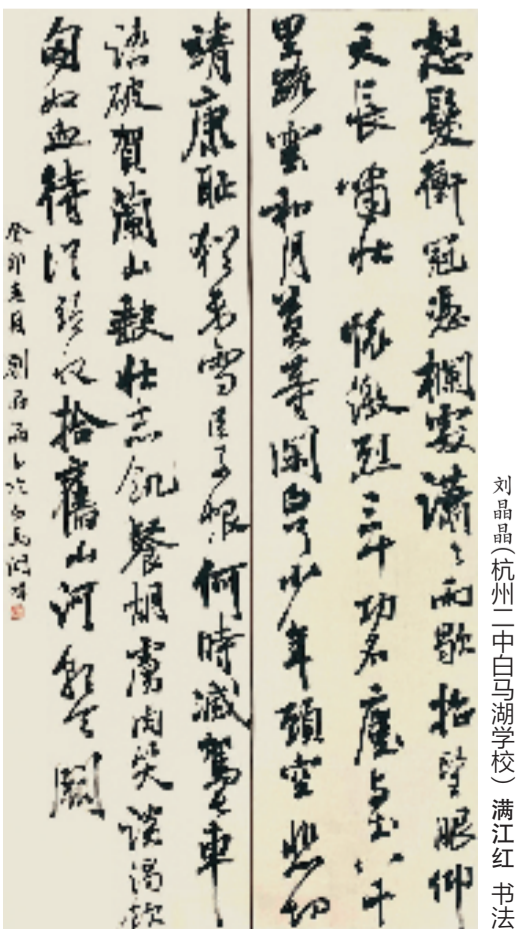 怒髮衝冠憑欄處瀟々雨歇抬望眼仰
天長嘯壯懷激烈三十功名塵與土八千
里路雲和月莫等閑白了少年頭空悲切
靖康恥猶未雪臣子恨何時滅駕長車
踏破賀蘭山缺壯志飢餐胡虜肉笑談渴飲
匈奴血待從頭收拾舊山河朝天闕
癸卯春月劉晶晶書於白馬湖畔
刘晶晶(杭州二中白马湖学校) 满江红 书法